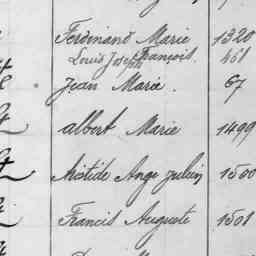 Ferdinand Marie 1320
Louis Joseph François 461
Jean Marie. 67
albert Marie 1499
Aristide Ange Julien 1500
Francis Auguste 1501